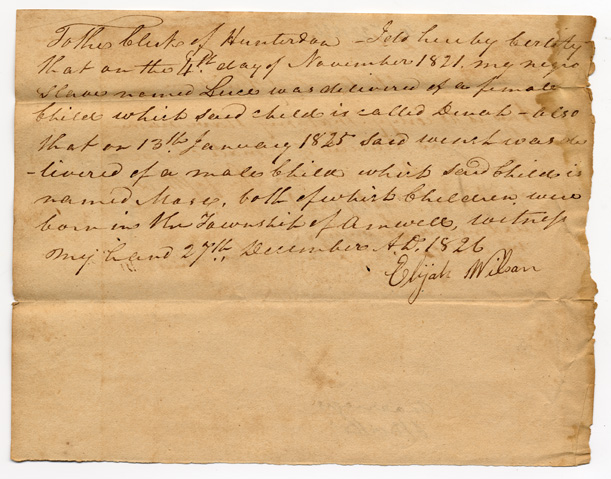 To the Clerk of Hunterdon - I do hereby Certify
that on the 4th day of November 1821, my negro
Slave named Luce was delivered of a female
Child which said child is called Dinah - also
that on 13th January 1825 said wench was de
-livered of a male Child which said Child is
named Mose, both of which Children were
born in the Township of Amwell, witness
my hand 27th, December A.D. 1826
Elijah Wilson